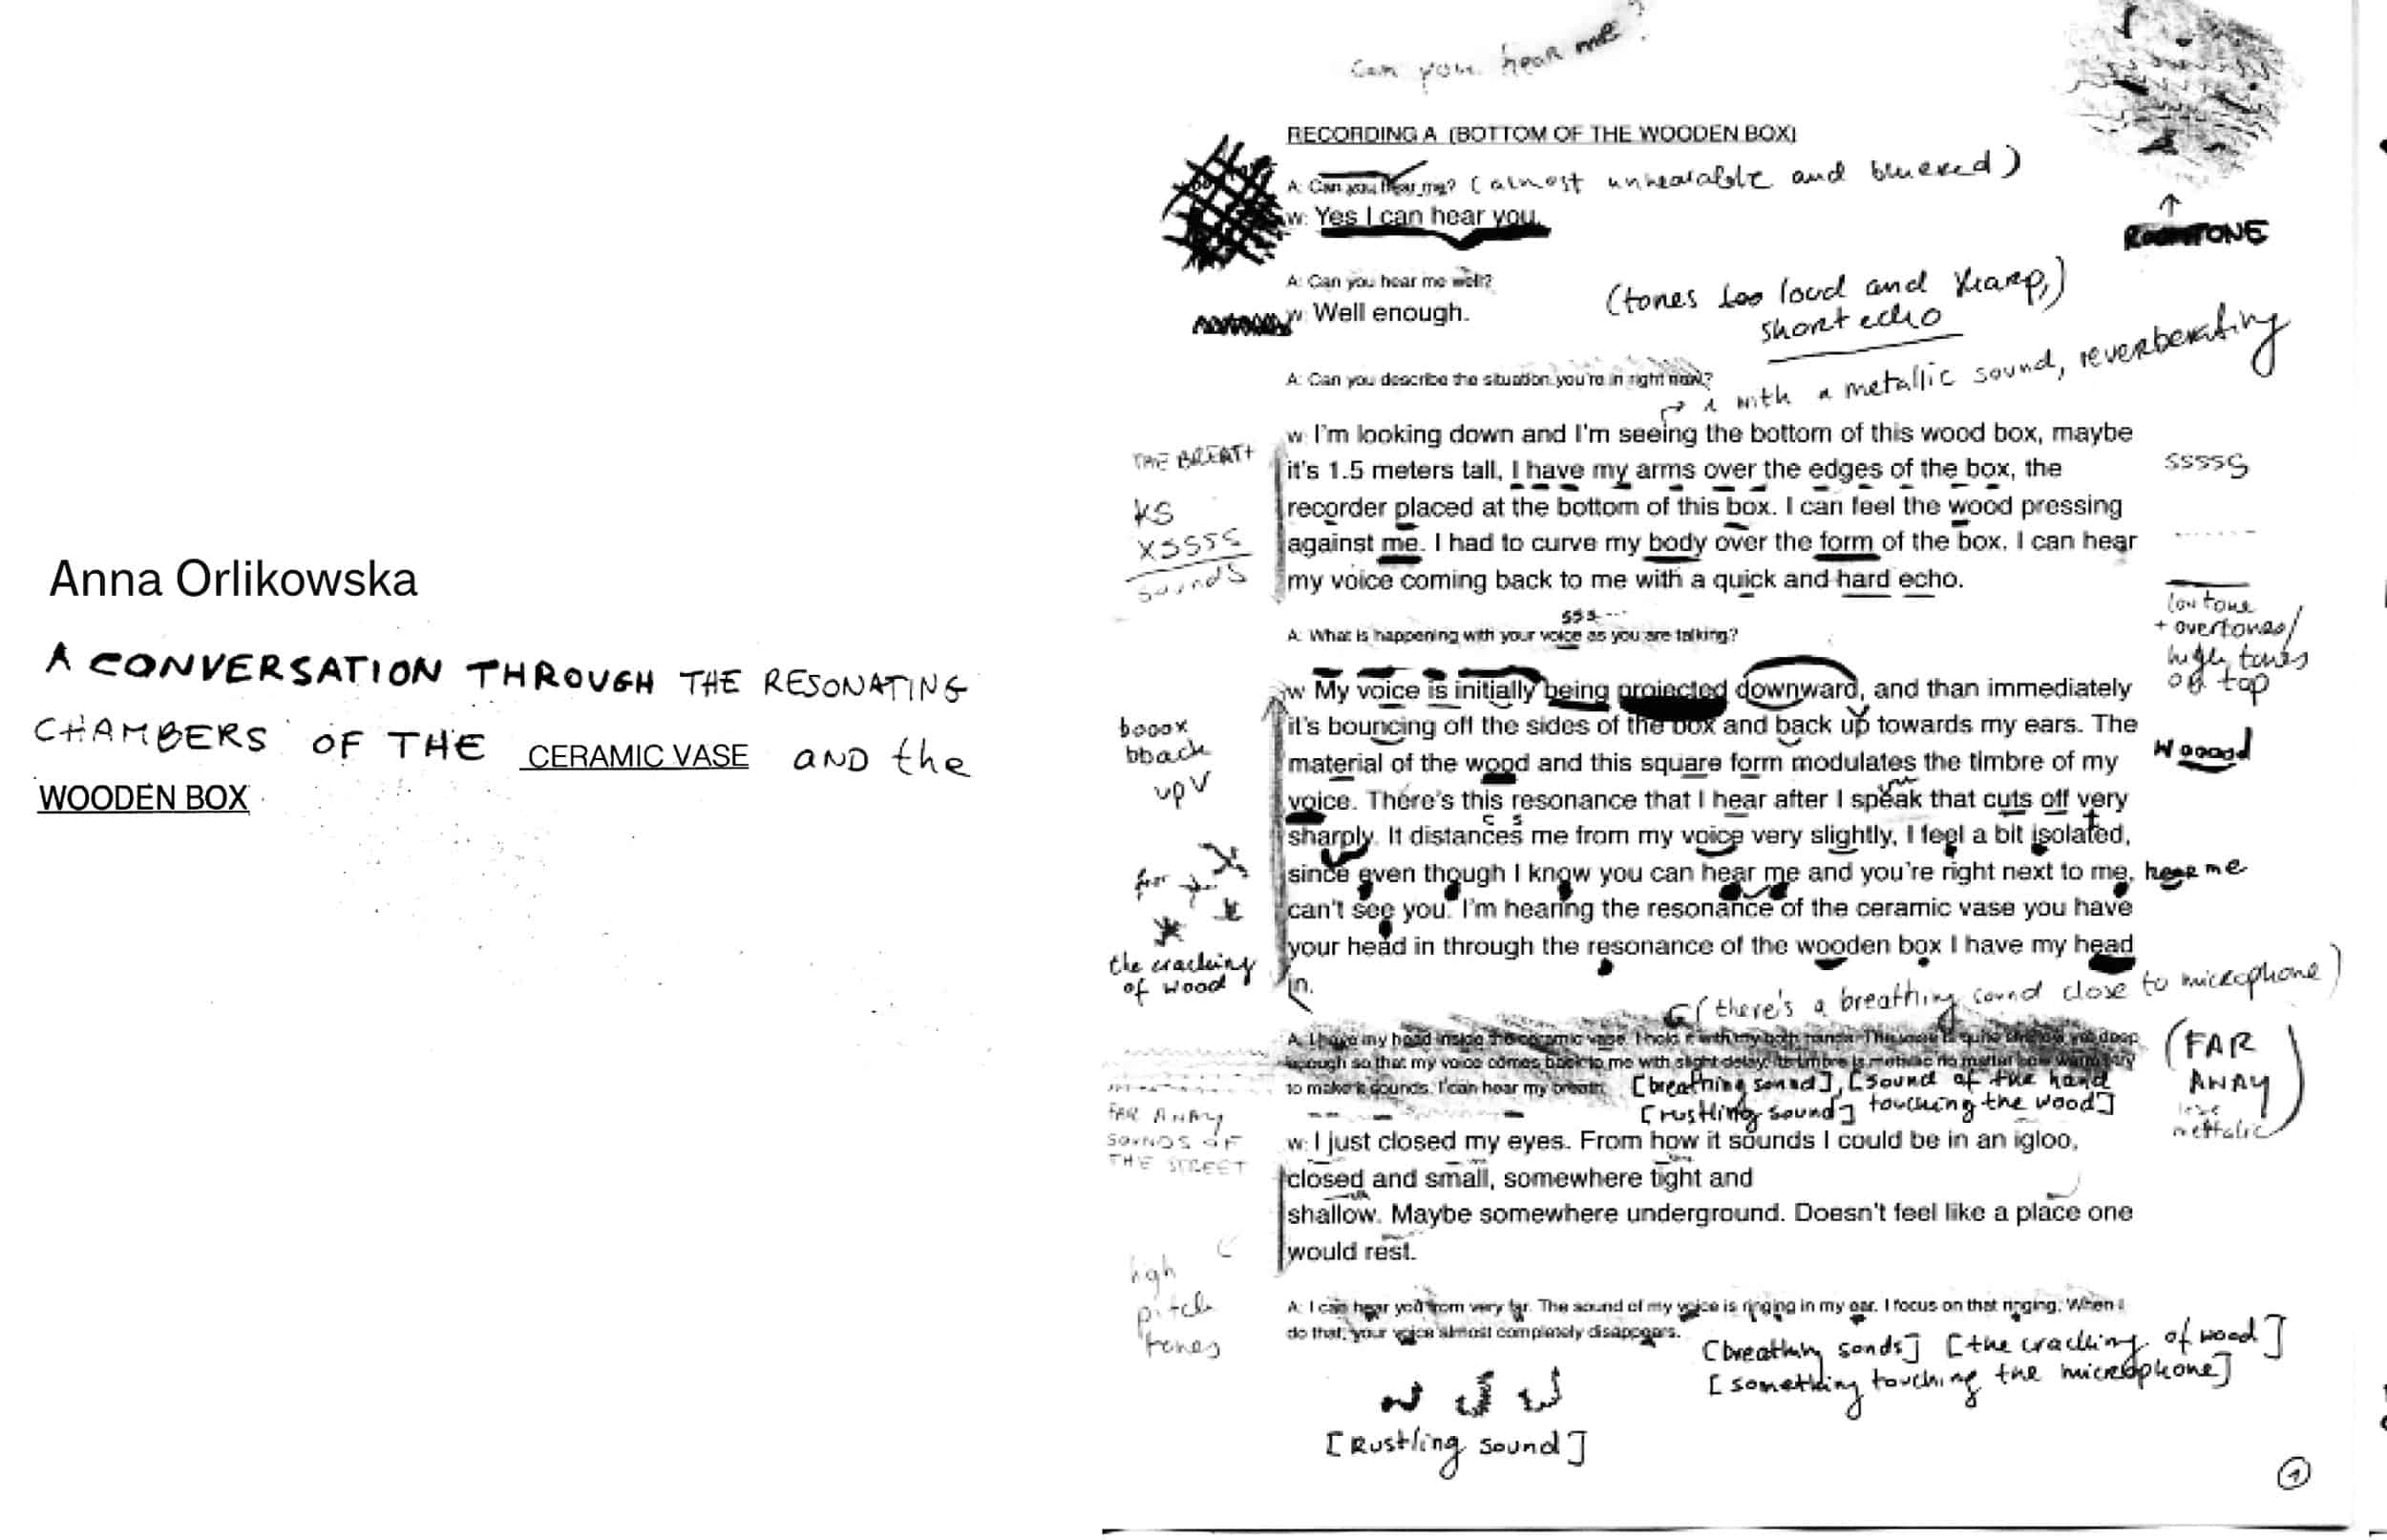 Anna Orlikowska
A CONVERSATION THROUGH THE RESONATING
CHAMBERS OF THE CERAMIC VASE AND the
WOODEN BOX
can you hear me?
RECORDING A (BOTTOM OF THE WOODEN BOX)
A: Can you hear me? (almost unhearable and bluered)
w: Yes I can hear you.
ROOMTONE
A: Can you hear me well?
w: Well enough.
(tones too loud and sharp,)
short echo
A: Can you describe the situation you're in right now?
with a metallic sound, reverberating
w: I'm looking down and I'm seeing the bottom of this wood box, maybe
it's 1.5 meters tall, I have my arms over the edges of the box, the
recorder placed at the bottom of this box. I can feel the wood pressing
against me. I had to curve my body over the form of the box. I can hear
my voice coming back to me with a quick and hard echo.
THE BREATH
KS
XSSSS
sounds
SSSSS
sss...
A: What is happening with your voice as you are talking?
low tone
+ overtones/
high tones
on top
w: My voice is initially being projected downward, and than immediately
it's bouncing off the sides of the box and back up towards my ears. The
material of the wood and this square form modulates the timbre of my
voice. There's this resonance that I hear after I speak that cuts off very
sharply. It distances me from my voice very slightly, I feel a bit isolated,
since even though I know you can hear me and you're right next to me, hear me
can't see you. I'm hearing the resonance of the ceramic vase you have
your head in through the resonance of the wooden box I have my head
in.
booox
bback
up
Wooood
the cracking
of wood
(there's a breathing sound close to microphone)
A: I have my head inside the ceramic vase. I hold it with my both hands. The vase is quite shallow yet deep
enough so that my voice comes back to me with slight delay. Its timbre is metallic no matter how warm I try
to make it sounds. I can hear my breath. [breathing sound], [sound of the hand
[rustling sound] touching the wood]
(FAR
AWAY)
less
mettalic
FAR AWAY
SOUNDS OF
THE STREET
w: I just closed my eyes. From how it sounds I could be in an igloo,
closed and small, somewhere tight and
shallow. Maybe somewhere underground. Doesn't feel like a place one
would rest.
high
pitch
tones
A: I can hear you from very far. The sound of my voice is ringing in my ear. I focus on that ringing. When I
do that, your voice almost completely disappears.
[breathing sonds] [the cracking of wood]
[something touching the microphone]
[Rustling sound]
1